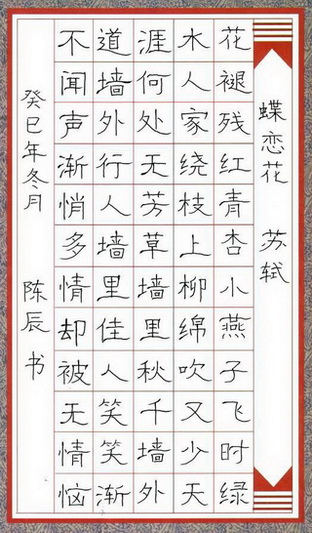 蝶恋花 苏轼
花褪残红青杏小燕子飞时绿
水人家绕枝上柳绵吹又少天
涯何处无芳草墙里秋千墙外
道墙外行人墙里佳人笑笑渐
不闻声渐悄多情却被无情恼
癸巳年冬月 陈辰书